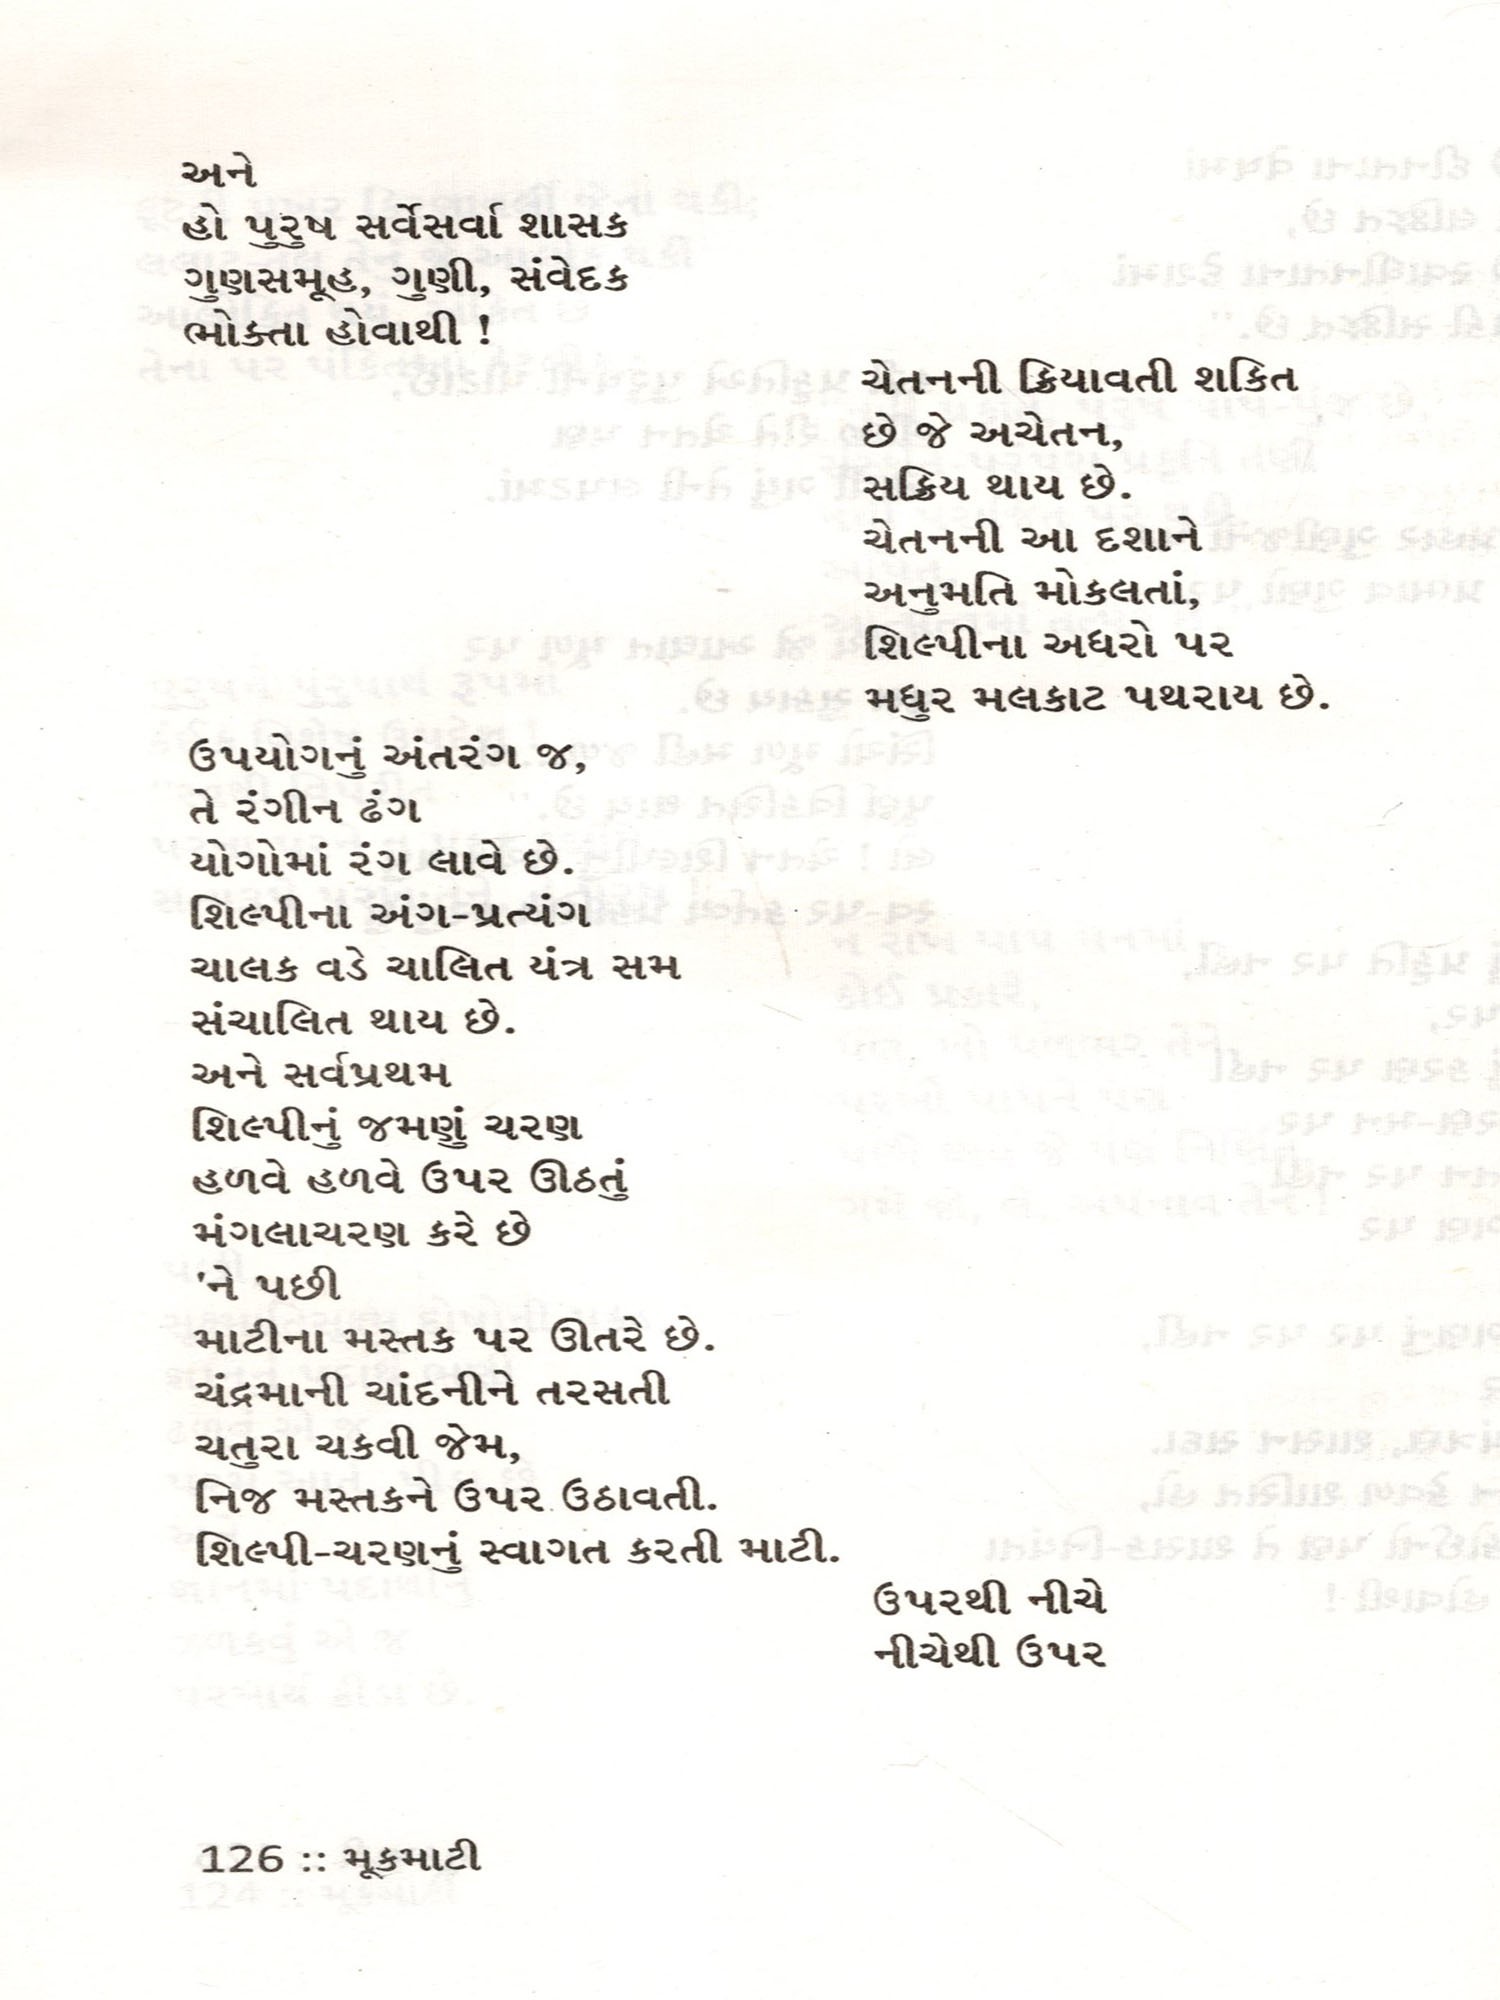 અને
હો પુરુષ સર્વેસર્વા શાસક
ગુણસમૂહ, ગુણી, સંવેદક
ભોક્તા હોવાથી !
ચેતનની ક્રિયાવતી શકિત
છે જે અચેતન,
સક્રિય થાય છે.
ચેતનની આ દશાને
અનુમતિ મોકલતાં,
શિલ્પીના અધરો પર
મધુર મલકાટ પથરાય છે.
ઉપયોગનું અંતરંગ જ,
તે રંગીન ઢંગ
યોગોમાં રંગ લાવે છે.
શિલ્પીના અંગ-પ્રત્યંગ
ચાલક વડે ચાલિત યંત્ર સમ
સંચાલિત થાય છે.
અને સર્વપ્રથમ
શિલ્પીનું જમણું ચરણ
હળવે હળવે ઉપર ઊઠતું
મંગલાચરણ કરે છે
'ને પછી
માટીના મસ્તક પર ઊતરે છે.
ચંદ્રમાની ચાંદનીને તરસતી
ચતુરા ચકવી જેમ,
નિજ મસ્તકને ઉપર ઉઠાવતી.
શિલ્પી-ચરણનું સ્વાગત કરતી માટી.
ઉપરથી નીચે
નીચેથી ઉપર
126 :: મૂકમાટી